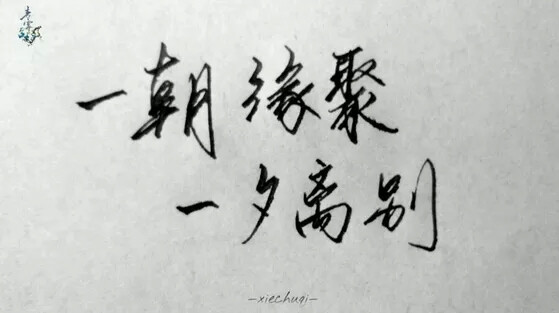 一朝缘聚
一夕离别
-xiechuqi-